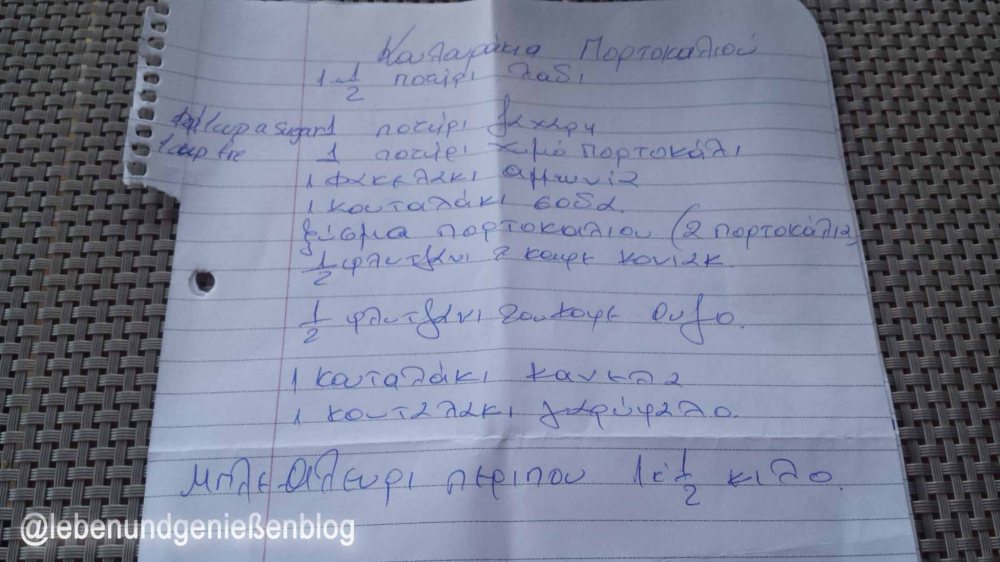 Κουλαράκια Πορτοκαλιού
1 1/2 ποτίρι λαδι
1 cup a sugar 1 ποτίρι ζαχαρη
1 cup 1 ποτίρι χιμό πορτοκάλι
1 φακελακι αμμωνία
1 κουταλάκι σοδα.
ξύσμα πορτοκαλιου (2 πορτοκάλια)
1/2 φλυτζανι κονιακ.
1/2 φλυτζανι ουζο.
1 κουταλάκι κανελα
1 κουταλακι γαρύφαλο.
Μπλε Αλευρι περιπου 1 έ 1/2 κιλο.
@lebenundgenießenblog